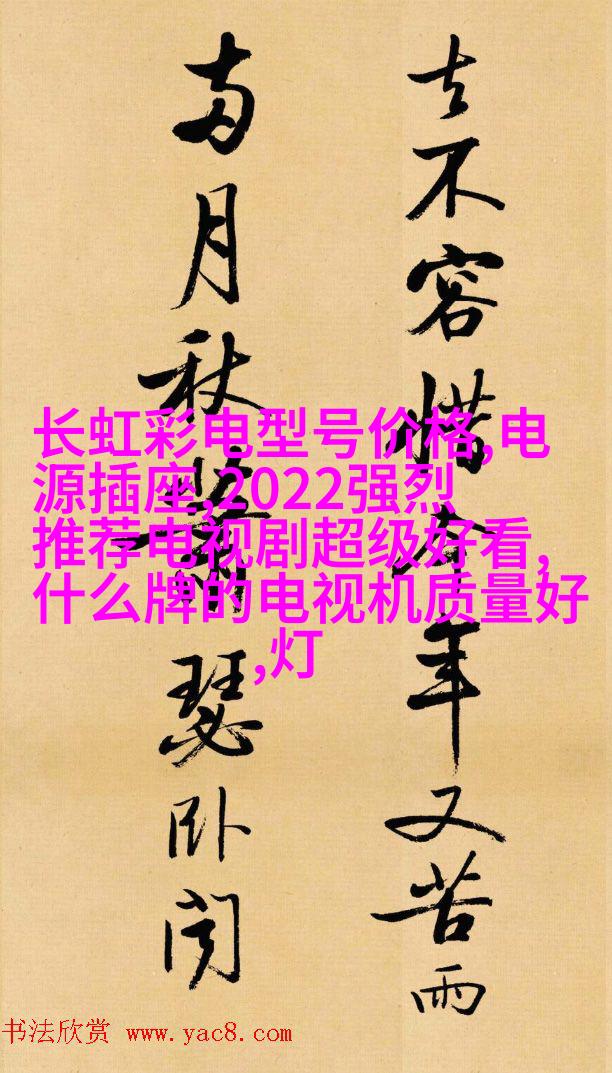 去不容惜今年又苦雨
两月秋蕭瑟卧闻
长虹彩电型号价格,电
源插座,2022强烈
推荐电视剧超级好看,
什么牌的电视机质量好
,灯
书法欣赏 www.yac8.com